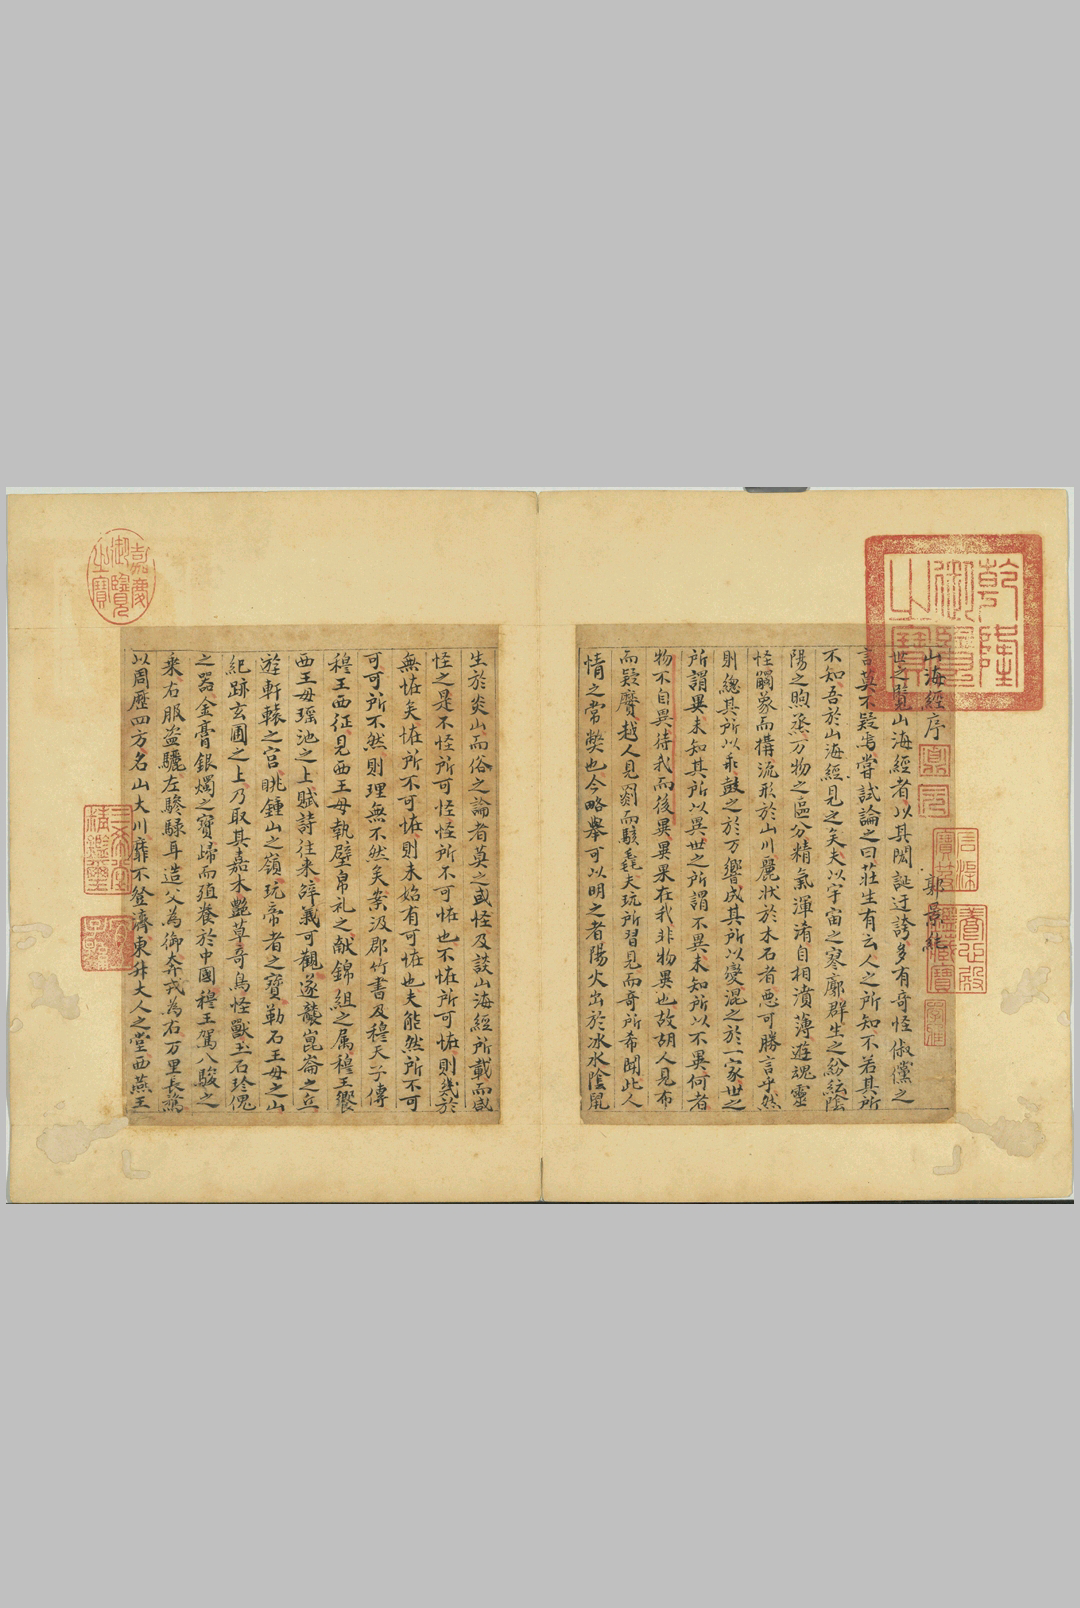 山海經序 郭景純
世之覽山海經者以其閎誕迂誇多有奇怪俶儻之
言莫不疑焉嘗試論之曰莊生有云人之所知不若其所
不知吾於山海經見之矣夫以宇宙之寥廓群生之紛紜陰
陽之煦蒸万物之區分精氣渾淆自相濆薄遊魂靈
怪觸象而構流形於山川麗狀於木石者惡可勝言乎然
則總其所以乖鼓之於万響成其所以變混之於一家世之
所謂異未知其所以異世之所謂不異未知所以不異何者
物不自異待我而後異異果在我非物異也故胡人見布
而疑黂越人見罽而駭毳夫玩所習見而奇所希聞此人
情之常弊也今略舉可以明之者陽火出於冰水陰鼠
生於炎山而俗之論者莫之或怪及談山海經所載而咸
怪之是不怪所可怪怪所不可怪也不怪所可怪則幾於
無怪矣怪所不可怪則未始有可怪也夫能然所不可
可可所不然則理無不然矣案汲郡竹書及穆天子傳
穆王西征見西王母執璧帛礼之献錦組之属穆王饗
西王母瑶池之上賦詩往来辝義可觀遂襲崑崙之丘
遊軒轅之宮眺鍾山之嶺玩帝者之寶勒石王母之山
紀跡玄圃之上乃取其嘉木艷草奇鳥怪獸玉石珍瑰
之器金膏銀燭之寶歸而殖養於中國穆王駕八駿之
乘右服盗驪左驂騄耳造父為御奔戎為右万里長騖
以周歷四方名山大川靡不登濟東升大人之堂西燕王
乾隆御覽之寶
嘉慶御覽之寶
三希堂精鑑璽
宜子孫
養心殿鑑藏寶